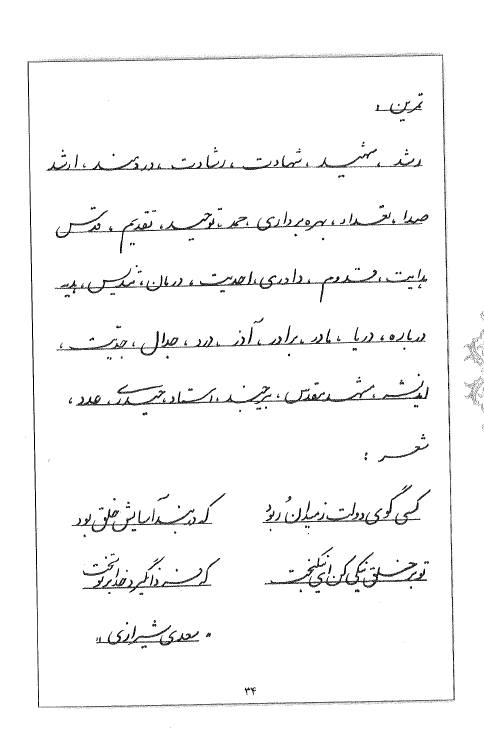 تمرین:
رشد، شهید، شهادت، رشادت، دردمند، ارشد
صدا، تعداد، بهره‌برداری، حمد، توحید، تقدیم، قدس
هدایت، قدوم، داوری، احدیت، درمان، تندیس، هدیه
درباره، دریا، مادر، برادر، آذر، درد، جدال، جدّیت،
اندیشه، مشهد مقدس، بیرجند، استاد، حیدری، عدد،
شعر:
کسی گوی دولت ز میدان رُبود که در بند آسایش خلق بود
تو بر خلق نیکی کن ای نیکبخت که فردا نگیرد خدا بر تو سخت
«سعدی شیرازی»
۳۴